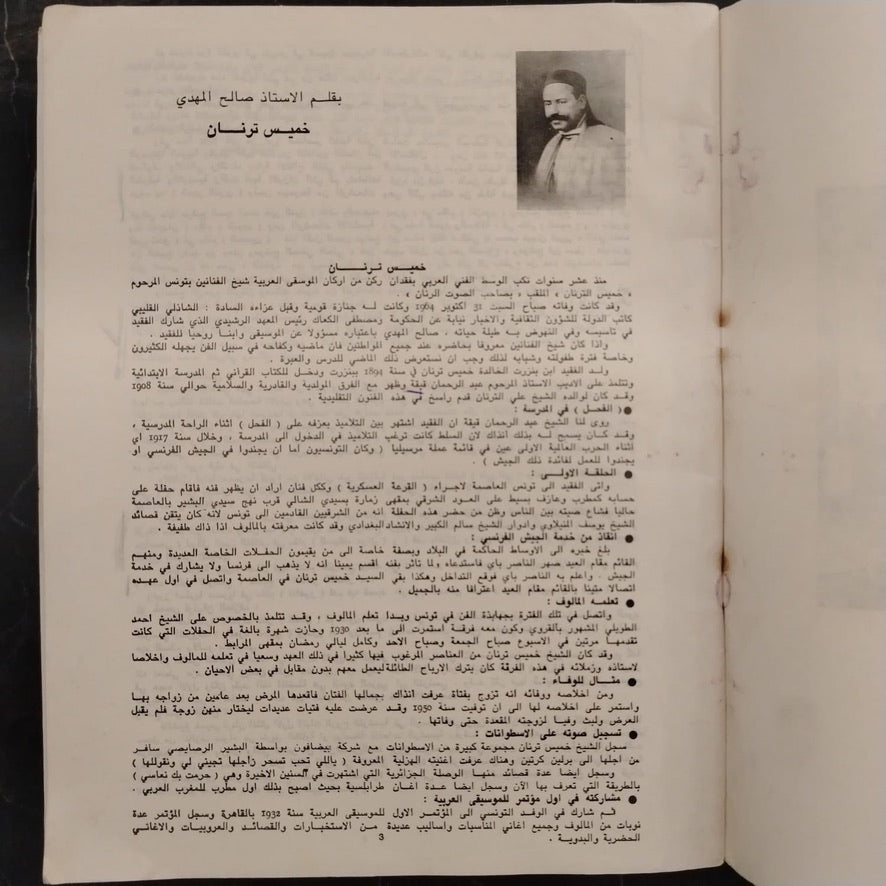 بقلم الاستاذ صالح المهدي
خميس ترنان
خميس ترنان
منذ عشر سنوات نكب الوسط الفني العربي بفقدان ركن من اركان الموسقى العربية شيخ الفنانين بتونس المرحوم
« خميس الترنان » الملقب « بصاحب الصوت الرنان » .
وقد كانت وفاته صباح السبت 31 اكتوبر 1964 وكانت له جنازة قومية وقبل عزاءه السادة : الشاذلي القليبي
كاتب الدولة للشؤون الثقافية والاخبار نيابة عن الحكومة ومصطفى الكعاك رئيس المعهد الرشيدي الذي شارك الفقيد
في تاسيسه وفي النهوض به طيلة حياته . صالح المهدي باعتباره مسؤولا عن الموسيقى وابنا روحيا للفقيد .
واذا كان شيخ الفنانين معروفا بحاضره عند جميع المواطنين فان ماضيه وكفاحه في سبيل الفن يجهله الكثيرون
وخاصة فترة طفولته وشبابه لذلك وجب ان نستعرض ذلك الماضي للدرس والعبرة .
ولد الفقيد ابن بنزرت الخالدة خميس ترنان في سنة 1894 ببنزرت ودخل للكتاب القراني ثم المدرسة الابتدائية
وتتلمذ على الاديب الاستاذ المرحوم عبد الرحمان قيقة وظهر مع الفرق المولدية والقادرية والسلامية حوالي سنة 1908
وقد كان لوالده الشيخ علي الترنان قدم راسخ في هذه الفنون التقليدية .
● ( الفحل ) في المدرسة :
روى لنا الشيخ عبد الرحمان قيقة ان الفقيد اشتهر بين التلاميذ بعزفه على ( الفحل ) اثناء الراحة المدرسية ،
وقد كان يسمح له بذلك آنذاك لان السلط كانت ترغب التلاميذ في الدخول الى المدرسة ، وخلال سنة 1917 اي
اثناء الحرب العالمية الاولى عين في قائمة عملة مرسيليا ( وكان التونسيون اما ان يجندوا في الجيش الفرنسي او
يجندوا للعمل لفائدة ذلك الجيش ) .
● الحلقة الاولى :
واتى الفقيد الى تونس العاصمة لاجراء ( القرعة العسكرية ) وككل فنان اراد ان يظهر فنه فاقام حفلة على
حسابه كمطرب وعازف بسيط على العود الشرقي بمقهى زمارة بسيدي الشالي قرب نهج سيدي البشير بالعاصمة
حاليا فشاع صيته بين الناس وظن من حضر هذه الحفلة انه من الشرقيين القادمين الى تونس لانه كان يتقن قصائد
الشيخ يوسف المنيلاوي وادوار الشيخ سالم الكبير والانشاد البغدادي وقد كانت معرفته بالمالوف اذا ذاك طفيفة .
● انقاذ من خدمة الجيش الفرنسي :
بلغ خبره الى الاوساط الحاكمة في البلاد وبصفة خاصة الى من يقيمون الحفلات الخاصة العديدة ومنهم
القائم مقام العيد صهر الناصر باي فاستدعاه ولما تاثر بفنه اقسم يمينا انه لا يذهب الى فرنسا ولا يشارك في خدمة
الجيش . واعلم به الناصر باي فوقع التداخل وهكذا بقي السيد خميس ترنان في العاصمة واتصل في اول عهده
اتصالا متينا بالقائم مقام العيد اعترافا منه بالجميل .
● تعلمه المالوف :
واتصل في تلك الفترة بجهابذة الفن في تونس وبدا تعلم المالوف ، وقد تتلمذ بالخصوص على الشيخ احمد
الطويلي المشهور بالقروي وكون معه فرقة استمرت الى ما بعد 1930 وحازت شهرة بالغة في الحفلات التي كانت
تقدمها مرتين في الاسبوع صباح الجمعة وصباح الاحد وكامل ليالي رمضان بمقهى المرابط .
وقد كان الشيخ خميس ترنان من العناصر المرغوب فيها كثيرا في ذلك العهد وسعيا في تعلمه للمالوف واخلاصا
لاستاذه وزملائه في هذه الفرقة كان يترك الارباح الطائلة ليعمل معهم بدون مقابل في بعض الاحيان .
● مثال للوفاء :
ومن اخلاصه ووفائه انه تزوج بفتاة عرفت آنذاك بجمالها الفتان فاقعدها المرض بعد عامين من زواجه بها
واستمر على اخلاصه لها الى ان توفيت سنة 1950 وقد عرضت عليه فتيات عديدات ليختار منهن زوجة فلم يقبل
العرض ولبث وفيا لزوجته المقعدة حتى وفاتها .
● تسجيل صوته على الاسطوانات :
سجل الشيخ خميس ترنان مجموعة كبيرة من الاسطوانات مع شركة بيضافون بواسطة البشير الرصايصي سافر
من اجلها الى برلين كرتين وهناك عرفت اغنيته الهزلية المعروفة ( ياللي تحب تسحر راجلها تجيني لي ونقوللها )
وسجل ايضا عدة قصائد منها الوصلة الجزائرية التي اشتهرت في السنين الاخيرة وهي ( حرمت بك نعاسي )
بالطريقة التي تعرف بها الآن وسجل ايضا عدة اغان طرابلسية بحيث اصبح بذلك اول مطرب للمغرب العربي .
● مشاركته في اول مؤتمر للموسيقى العربية :
ثم شارك في الوفد التونسي الى المؤتمر الاول للموسيقى العربية سنة 1932 بالقاهرة وسجل المؤتمر عدة
نوبات من المالوف وجميع اغاني المناسبات واساليب عديدة من الاستخبارات والقصائد والعروبيات والاغاني
الحضرية والبدوية .
3